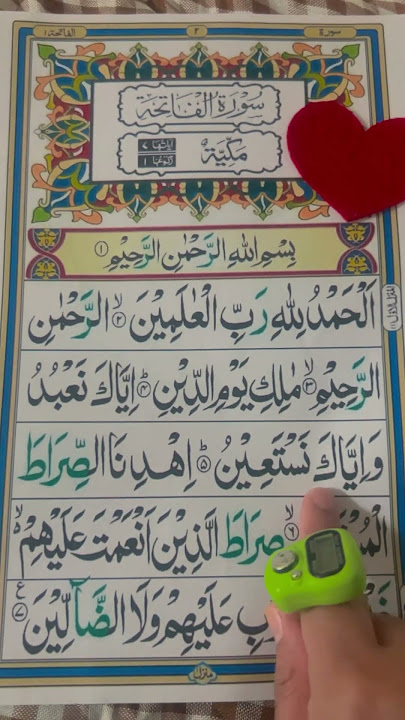 سورة ٢ الفاتحة ١
سُوْرَةُ الْفَاتِحَةِ
مَكِّيَّةٌ اٰيَاتُهَا ٧ رُكُوْعُهَا ١
بِسْمِ اللهِ الرَّحْمٰنِ الرَّحِيْمِ ①
اَلْحَمْدُ لِلّٰهِ رَبِّ الْعٰلَمِيْنَ ۙ② الرَّحْمٰنِ
الرَّحِيْمِ ۙ③ مٰلِكِ يَوْمِ الدِّيْنِ ؕ④ اِيَّاكَ نَعْبُدُ
وَاِيَّاكَ نَسْتَعِيْنُ ؕ⑤ اِهْدِنَا الصِّرَاطَ
ۙ⑥ صِرَاطَ الَّذِيْنَ اَنْعَمْتَ عَلَيْهِمْ ۙ۬
عَلَيْهِمْ وَلَا الضَّآلِّيْنَ ⑦ ع
منزل